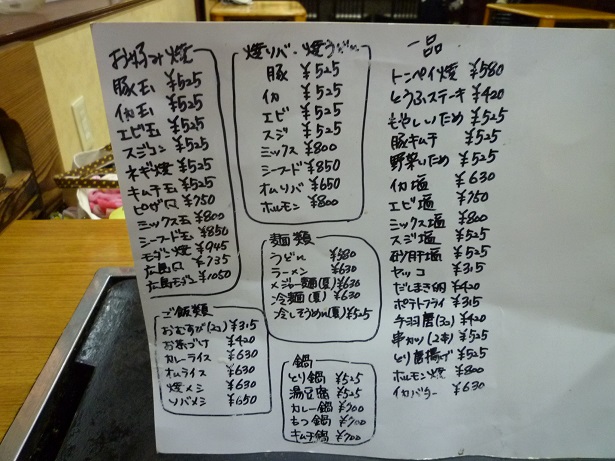 お好み焼
豚玉 ¥525
イカ玉 ¥525
エビ玉 ¥525
スジコン ¥525
ネギ焼 ¥525
キムチ玉 ¥525
ピザ風 ¥750
ミックス玉 ¥800
シーフード玉 ¥850
モダン焼 ¥945
広島風 ¥735
広島モダン ¥1050
ご飯類
おむすび(2コ) ¥315
お茶づけ ¥420
カレーライス ¥630
オムライス ¥630
焼メシ ¥630
ソバメシ ¥650
焼ソバ・焼うどん
豚 ¥525
イカ ¥525
エビ ¥525
スジ ¥525
ミックス ¥800
シーフード ¥850
オムソバ ¥650
ホルモン ¥800
麺類
うどん ¥580
ラーメン ¥630
メジャー麺(夏) ¥630
冷麺(夏) ¥630
冷しそうめん(夏) ¥525
鍋
とり鍋 ¥525
湯豆腐 ¥525
カレー鍋 ¥700
もつ鍋 ¥700
キムチ鍋 ¥700
一品
トンペイ焼 ¥580
とうふステーキ ¥420
もやしいため ¥525
豚キムチ ¥525
野菜いため ¥525
イカ塩 ¥630
エビ塩 ¥750
ミックス塩 ¥800
スジ塩 ¥525
砂肝塩 ¥525
ヤッコ ¥315
だしまき ¥420
ポテトフライ ¥315
手羽唐(3コ) ¥420
串カツ(2本) ¥525
とり唐揚げ ¥525
ホルモン焼 ¥800
イカバター ¥630